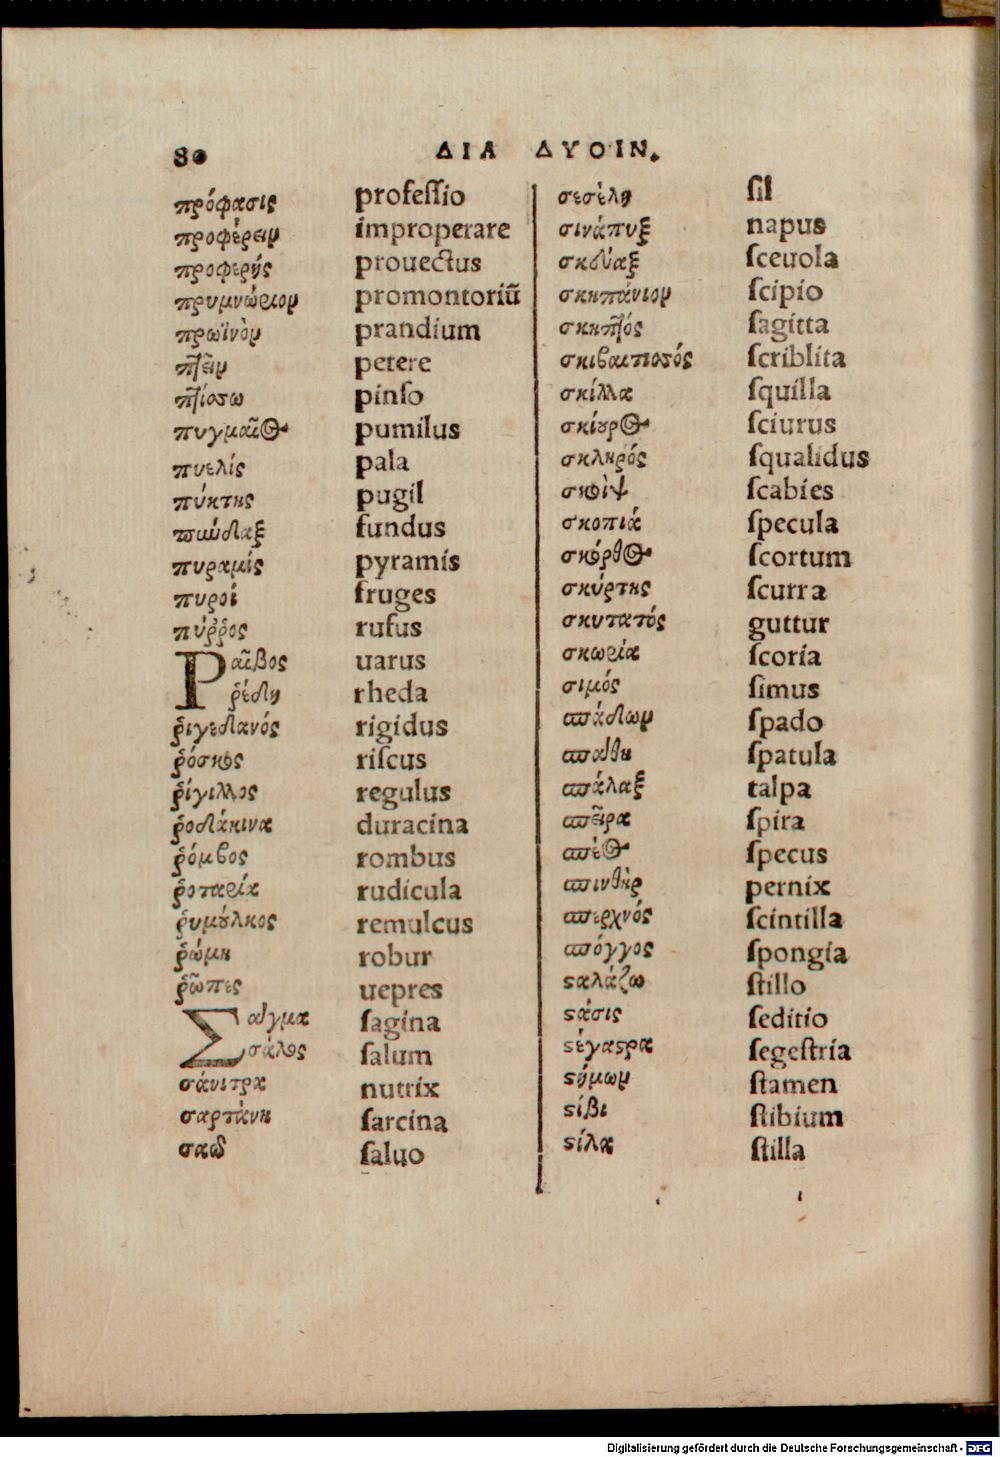 80 ΔΙΑ ΔΥΟΙΝ.
πρόφασις profeſſio
προφέρειν improperare
προφερής prouectus
πρυμνώριον promontoriũ
πρωϊνὸν prandium
πτεῖν petere
πτίσσω pinſo
πυγμαῖος pumilus
πυελίς pala
πύκτης pugil
πύνδαξ fundus
πυραμίς pyramis
πυροί fruges
πύῤῥος rufus
Ραῖβος uarus
ῥέδη rheda
ῥιγεδανός rigidus
ῥόσκος riſcus
ῥίγιλλος regulus
ῥοδάκινα duracina
ῥόμβος rombus
ῥοταρία rudicula
ῥυμούλκος remulcus
ῥώμη robur
ῥῶπες uepres
Σαίγμα ſagina
σάλος ſalum
σάνιτρα nutrix
σαρτάνη ſarcina
σαῶ ſaluo
σεσέλη ſil
σινάπυξ napus
σκεύαξ ſceuola
σκηπάνιον ſcipio
σκηπτός ſagitta
σκιβλιπιστός ſcriblita
σκίλλα ſquilla
σκίουρος ſciurus
σκληρός ſqualidus
σκνίψ ſcabies
σκοπιά ſpecula
σκόρθος ſcortum
σκύρτης ſcurra
σκυτατός guttur
σκωρία ſcoria
σιμός ſimus
σπάδων ſpado
σπάθη ſpatula
σπάλαξ talpa
σπεῖρα ſpira
σπέος ſpecus
σπινθὴρ pernix
σπερχνός ſcintilla
σπόγγος ſpongia
σταλάζω ſtillo
στάσις ſeditio
στέγαστρα ſegeſtria
στήμων ſtamen
στίβι ſtibium
στίλα ſtilla
Digitalisierung gefördert durch die Deutsche Forschungsgemeinschaft - DFG